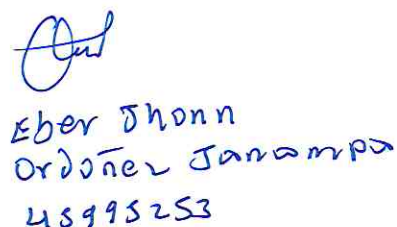 Eber Jhonn
Ordoñez Janampa
45995253